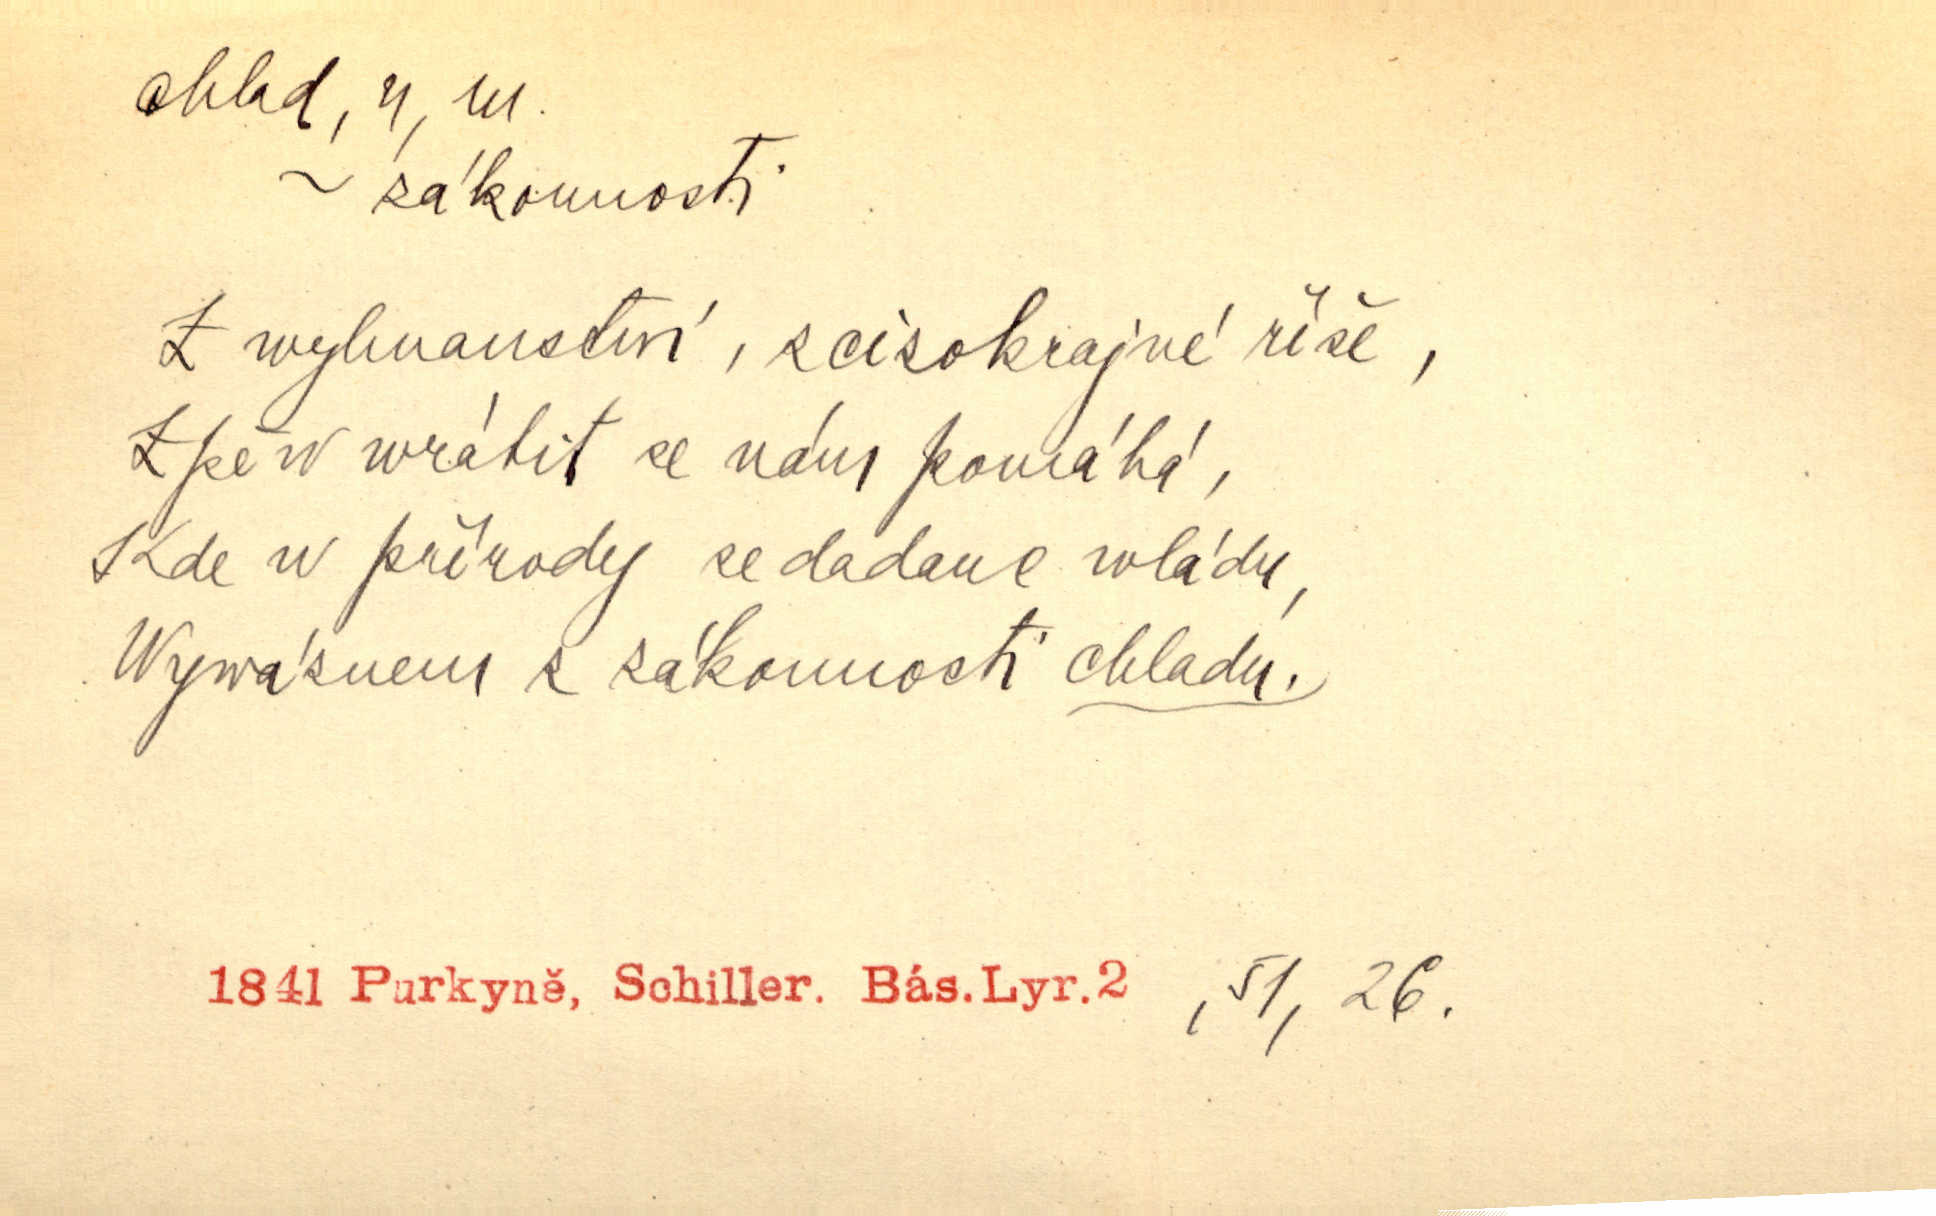 chlad, u, m.
~ zákonnosti
Z wyhnanstwí, z cizokrajné říše,
Zpěw wrátit se nám pomáhá,
Kde w přírody se dadauc wládu,
Wywáznem z zákonnosti chladu.
1841 Purkyně, Schiller. Bás.Lyr.2 , 51, 26.